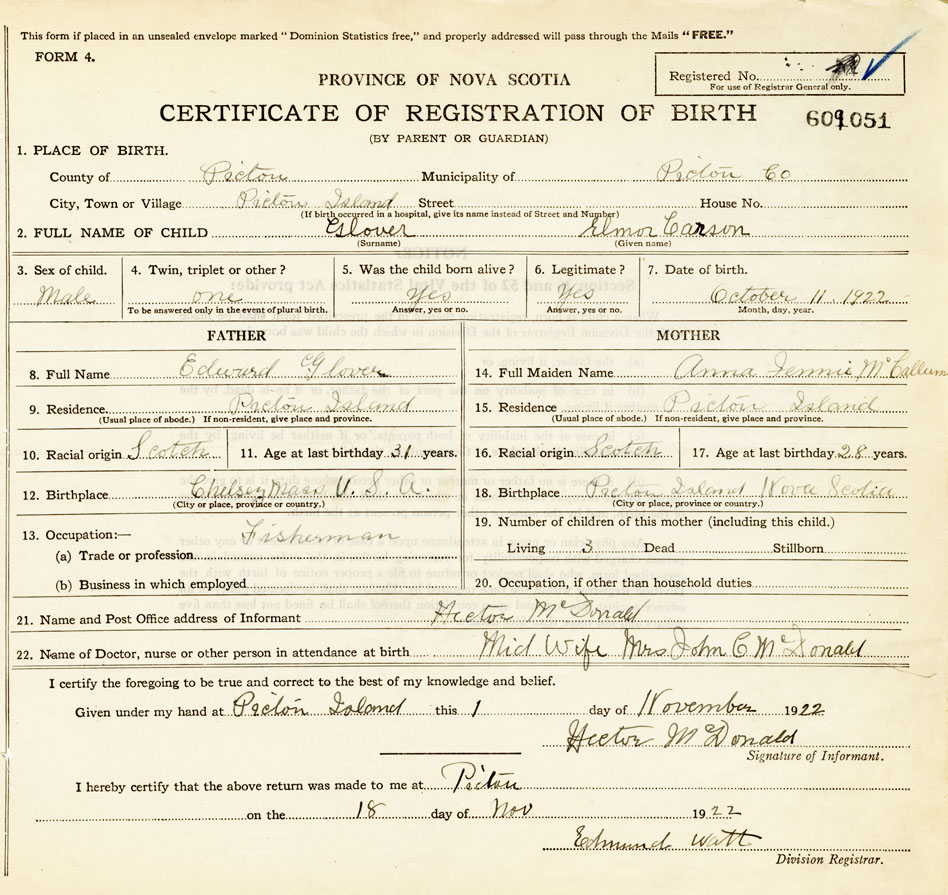 This form if placed in an unsealed envelope marked "Dominion Statistics free," and properly addressed will pass through the Mails "FREE."
FORM 4.
Registered No.
For use of Registrar General only.
PROVINCE OF NOVA SCOTIA
CERTIFICATE OF REGISTRATION OF BIRTH
609051
(BY PARENT OR GUARDIAN)
1. PLACE OF BIRTH.
County of Picton Municipality of Picton Co
City, Town or Village Picton Island Street House No.
(If birth occurred in a hospital, give its name instead of Street and Number)
2. FULL NAME OF CHILD Glover Elmor Carson
(Surname) (Given name)
3. Sex of child. 4. Twin, triplet or other? 5. Was the child born alive? 6. Legitimate? 7. Date of birth.
Male one Yes Yes October 11. 1922
To be answered only in the event of plural birth. Answer, yes or no. Answer, yes or no. Month, day, year.
FATHER MOTHER
8. Full Name Edward Glover 14. Full Maiden Name Anna Jennie McCallum
9. Residence. Picton Island 15. Residence Picton Island
(Usual place of abode.) If non-resident, give place and province. (Usual place of abode.) If non-resident, give place and province.
10. Racial origin Scotch 11. Age at last birthday 31 years. 16. Racial origin Scotch 17. Age at last birthday 28 years.
12. Birthplace Chelsey Mass U. S. A. 18. Birthplace Picton Island Nova Scotia
(City or place, province or country.) (City or place, province or country.)
13. Occupation:— Fisherman 19. Number of children of this mother (including this child.)
(a) Trade or profession Living 3 Dead Stillborn
(b) Business in which employed 20. Occupation, if other than household duties
21. Name and Post Office address of Informant Hector McDonald
22. Name of Doctor, nurse or other person in attendance at birth Mid Wife Mrs John C McDonald
I certify the foregoing to be true and correct to the best of my knowledge and belief.
Given under my hand at Picton Island this 1 day of November 1922
Hector McDonald
Signature of Informant.
I hereby certify that the above return was made to me at Picton
on the 18 day of Nov 1922
Edmund Watt
Division Registrar.